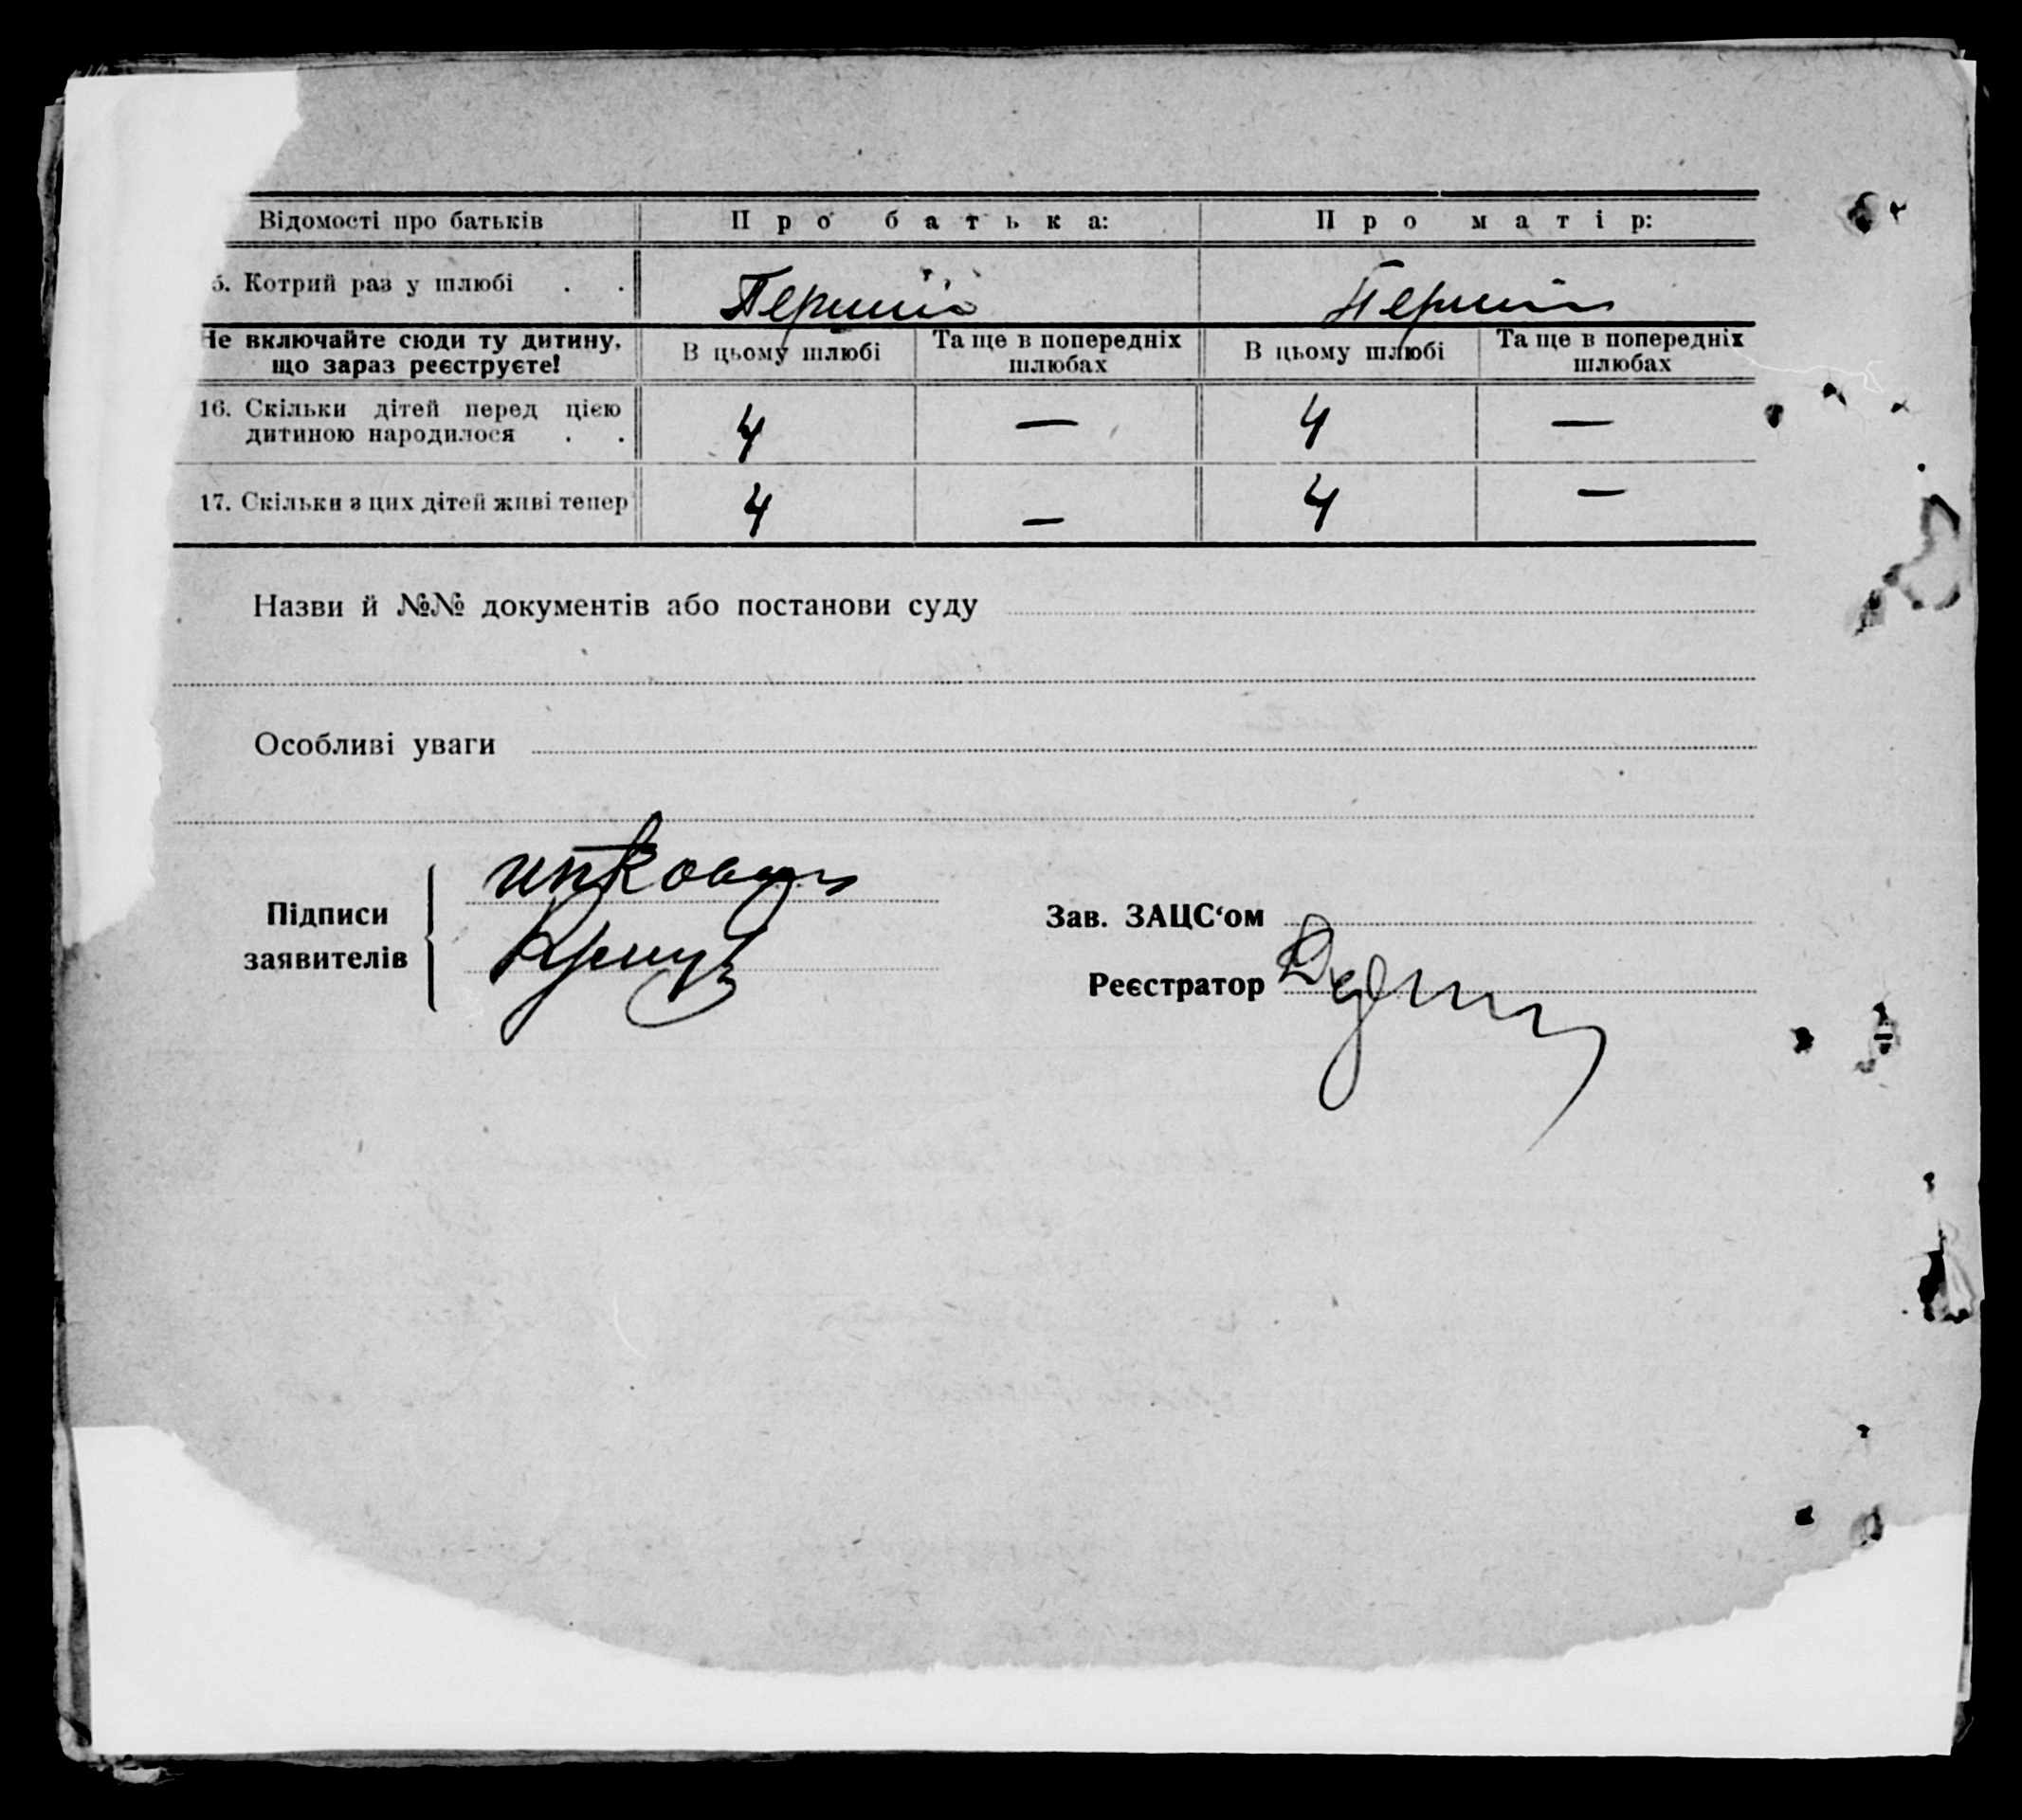 Відомості про батьків
Про батька:
Про матір:
5. Котрий раз у шлюбі . .
Перший
Перший
Не включайте сюди ту дитину,
що зараз реєструєте!
В цьому шлюбі
Та ще в попередніх
шлюбах
В цьому шлюбі
Та ще в попередніх
шлюбах
16. Скільки дітей перед цією
дитиною народилося . .
4
—
4
—
17. Скільки з цих дітей живі тепер
4
—
4
—
Назви й №№ документів або постанови суду
Особливі уваги
Підписи
заявителів
Зав. ЗАЦС‘ом
Реєстратор